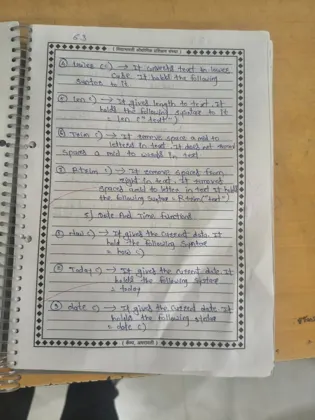 53
④ lower () → It converts text in lower
Case. It holds the following
Syntax to it
⑤ len () → It gives length to text. It
holds the following syntax to it
= len ("text")
⑥ Trim () → It remove space amid to
letters in text. It does not remove
spaces amid to words in text
⑦ Rtrim () → It remove spaces from
right in text. It removes
spaces amid to letter in text It holds
the following syntax = Rtrim("text")
5) Date And Time function
① Now () → It gives the current date. It
hold the following Syntax
= now ()
② Today () → It gives the current date. It
holds the following syntax
= today
③ date () → It gives the current date It
holds the following syntax
= date ()